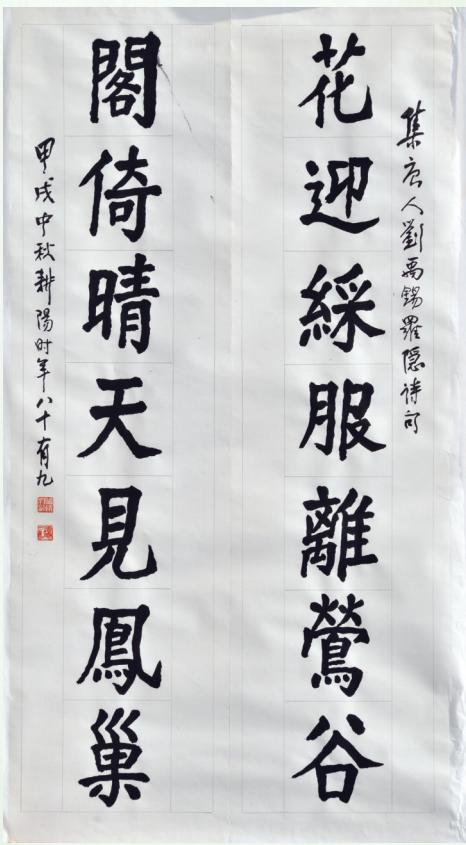 集唐人劉禹錫羅隐诗句
花迎綵服離鶯谷
閣倚晴天見鳳巢
甲戌中秋耕陽时年八十有九